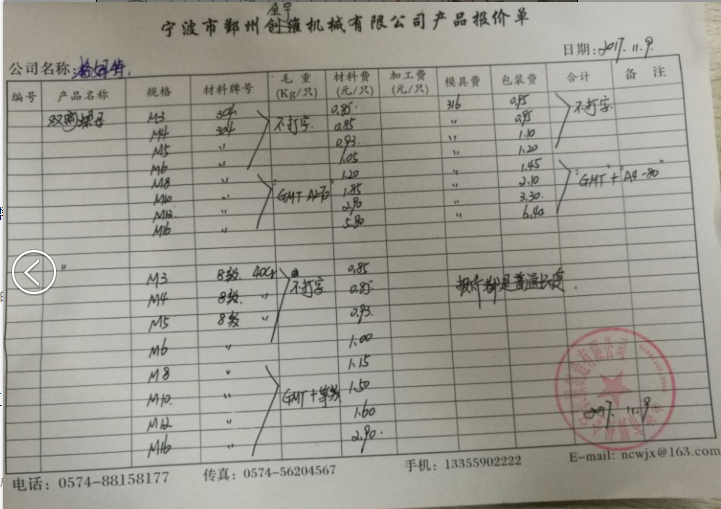 金甲
宁波市鄞州创维机械有限公司产品报价单
日期: 2017. 11. 9.
公司名称:
编号 产品名称 规格 材料牌号 毛重(Kg/只) 材料费(元/只) 加工费(元/只) 模具费 包装费 合计 备 注
双 螺母 M3 304 不打字 0.85 316 0.95 不打字
M4 304 0.85 〃 0.95
M5 〃 0.93 〃 1.10
M6 〃 1.05 〃 1.20
M8 〃 "GMT A2-70" 1.20 〃 1.45 "GMT"+"A4-80"
M10 〃 1.85 〃 2.10
M12 〃 2.90 〃 3.30
M16 〃 5.80 〃 6.40
〃 M3 8级 40Cr 不打字 0.85
M4 8级 〃 0.85 报价都是普通长度.
M5 8级 〃 0.93
M6 〃 1.00
M8 〃 GMT+等级 1.15
M10 〃 1.50
M12 〃 1.60 2017. 11. 9
M16 〃 2.90
电话: 0574-88158177 传真: 0574-56204567 手机: 13355902222 E-mail: ncwjx@163.com